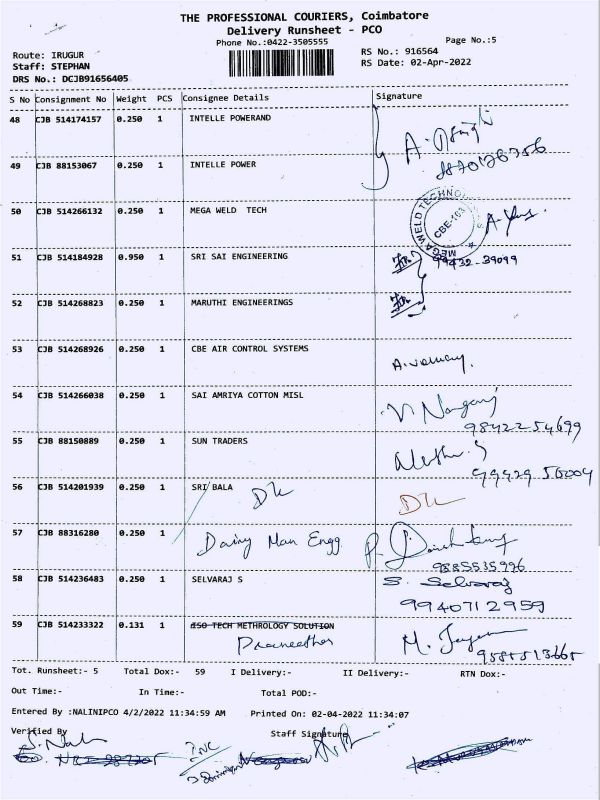 THE PROFESSIONAL COURIERS, Coimbatore
Delivery Runsheet - PCO
Phone No.:0422-3505555
Page No.:5
Route: IRUGUR
RS No.: 916564
Staff: STEPHAN
RS Date: 02-Apr-2022
DRS No.: DCJB91656405
S No Consignment No Weight PCS Consignee Details Signature
48 CJB 514174157 0.250 1 INTELLE POWERAND
49 CJB 88153067 0.250 1 INTELLE POWER
50 CJB 514266132 0.250 1 MEGA WELD TECH
MEGA WELD TECHNO
CBE-103
51 CJB 514184928 0.950 1 SRI SAI ENGINEERING
99432-39099
52 CJB 514268823 0.250 1 MARUTHI ENGINEERINGS
53 CJB 514268926 0.250 1 CBE AIR CONTROL SYSTEMS
54 CJB 514266038 0.250 1 SAI AMRIYA COTTON MISL
9842254699
55 CJB 88150889 0.250 1 SUN TRADERS
56 CJB 514201939 0.250 1 SRI BALA
57 CJB 88316280 0.250 1 Dainy Man Engg.
9885535996
58 CJB 514236483 0.250 1 SELVARAJ S S. Selvaraj
9940712959
59 CJB 514233322 0.131 1 ISO TECH METHROLOGY SOLUTION
Tot. Runsheet:- 5 Total Dox:- 59 I Delivery:- II Delivery:- RTN Dox:-
Out Time:- In Time:- Total POD:-
Entered By :NALINIPCO 4/2/2022 11:34:59 AM Printed On: 02-04-2022 11:34:07
Verified By Staff Signature